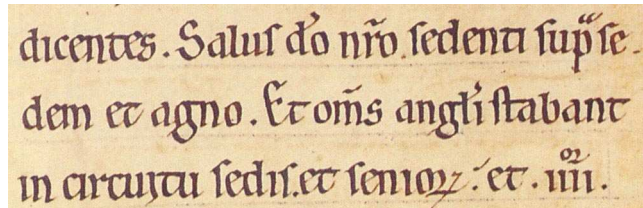 dicentes. Saluſ dō nr̄o ſedenti ſup̄ ſe
dem et agno. Et om̄s angl̄i ſtabant
in circuitu ſedis. et senioꝝ. et .iiii.ᵒꝝ